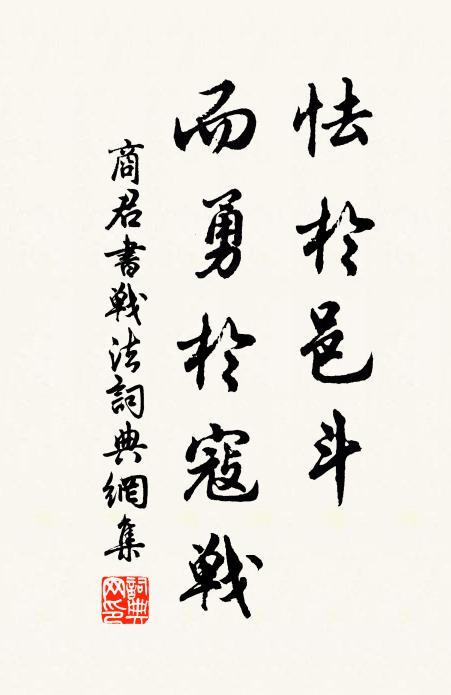 怯於邑斗
而勇於寇戰
商君書戰法詞典網集
詞典網印